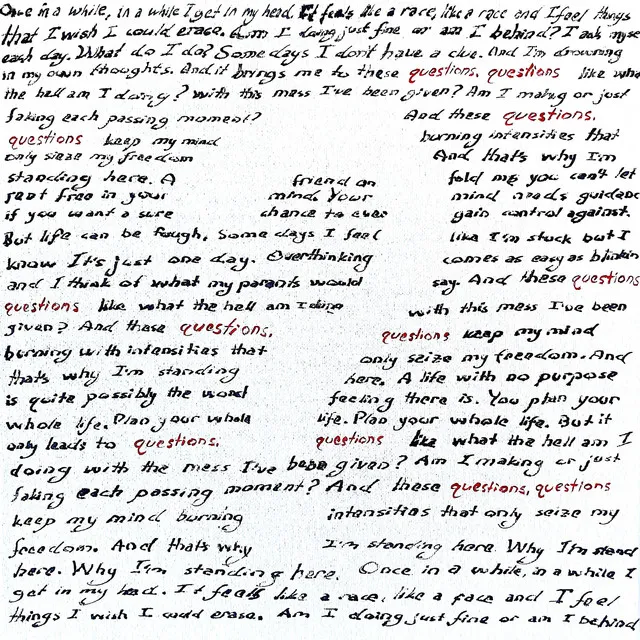 Once in a while, in a while I get in my head. It feels like a race, like a race and I feel things
that I wish I could erase. Am I doing just fine or am I behind? I ask myse
each day. What do I do? Some days I don't have a clue. And I'm drowning
in my own thoughts. And it brings me to these questions, questions like wha
the hell am I doing? With this mess I've been given? Am I making or just
faking each passing moment? And these questions.
questions keep my mind burning intensities that
only sieze my freedom And that's why I'm
standing here. A friend on told me you can't let
rent free in your mind. Your mind needs guidanc
if you want a sure chance to ever gain control against.
But life can be tough, some days I feel like I'm stuck but I
know It's just one day. Overthinking comes as easy as blinkin
and I think of what my parents would say. And these questions
questions like what the hell am I doing with this mess I've been
given? And these questions. questions keep my mind
burning with intensities that only seize my freedom. And
thats why I'm standing here. A life with no purpose
is quite possibly the worst feeling there is. You plan your
whole life. Plan your whole life. Plan your whole life. But it
only leads to questions. questions like what the hell am I
doing with the mess I've been given? Am I making or just
faking each passing moment? And these questions, questions
keep my mind burning intensities that only seize my
freedom. And thats why I'm standing here. Why I'm stand
here. Why I'm standing here. Once in a while, in a while I
get in my head. It feels like a race, like a race and I feel
things I wish I could erase. Am I doing just fine or am I behind